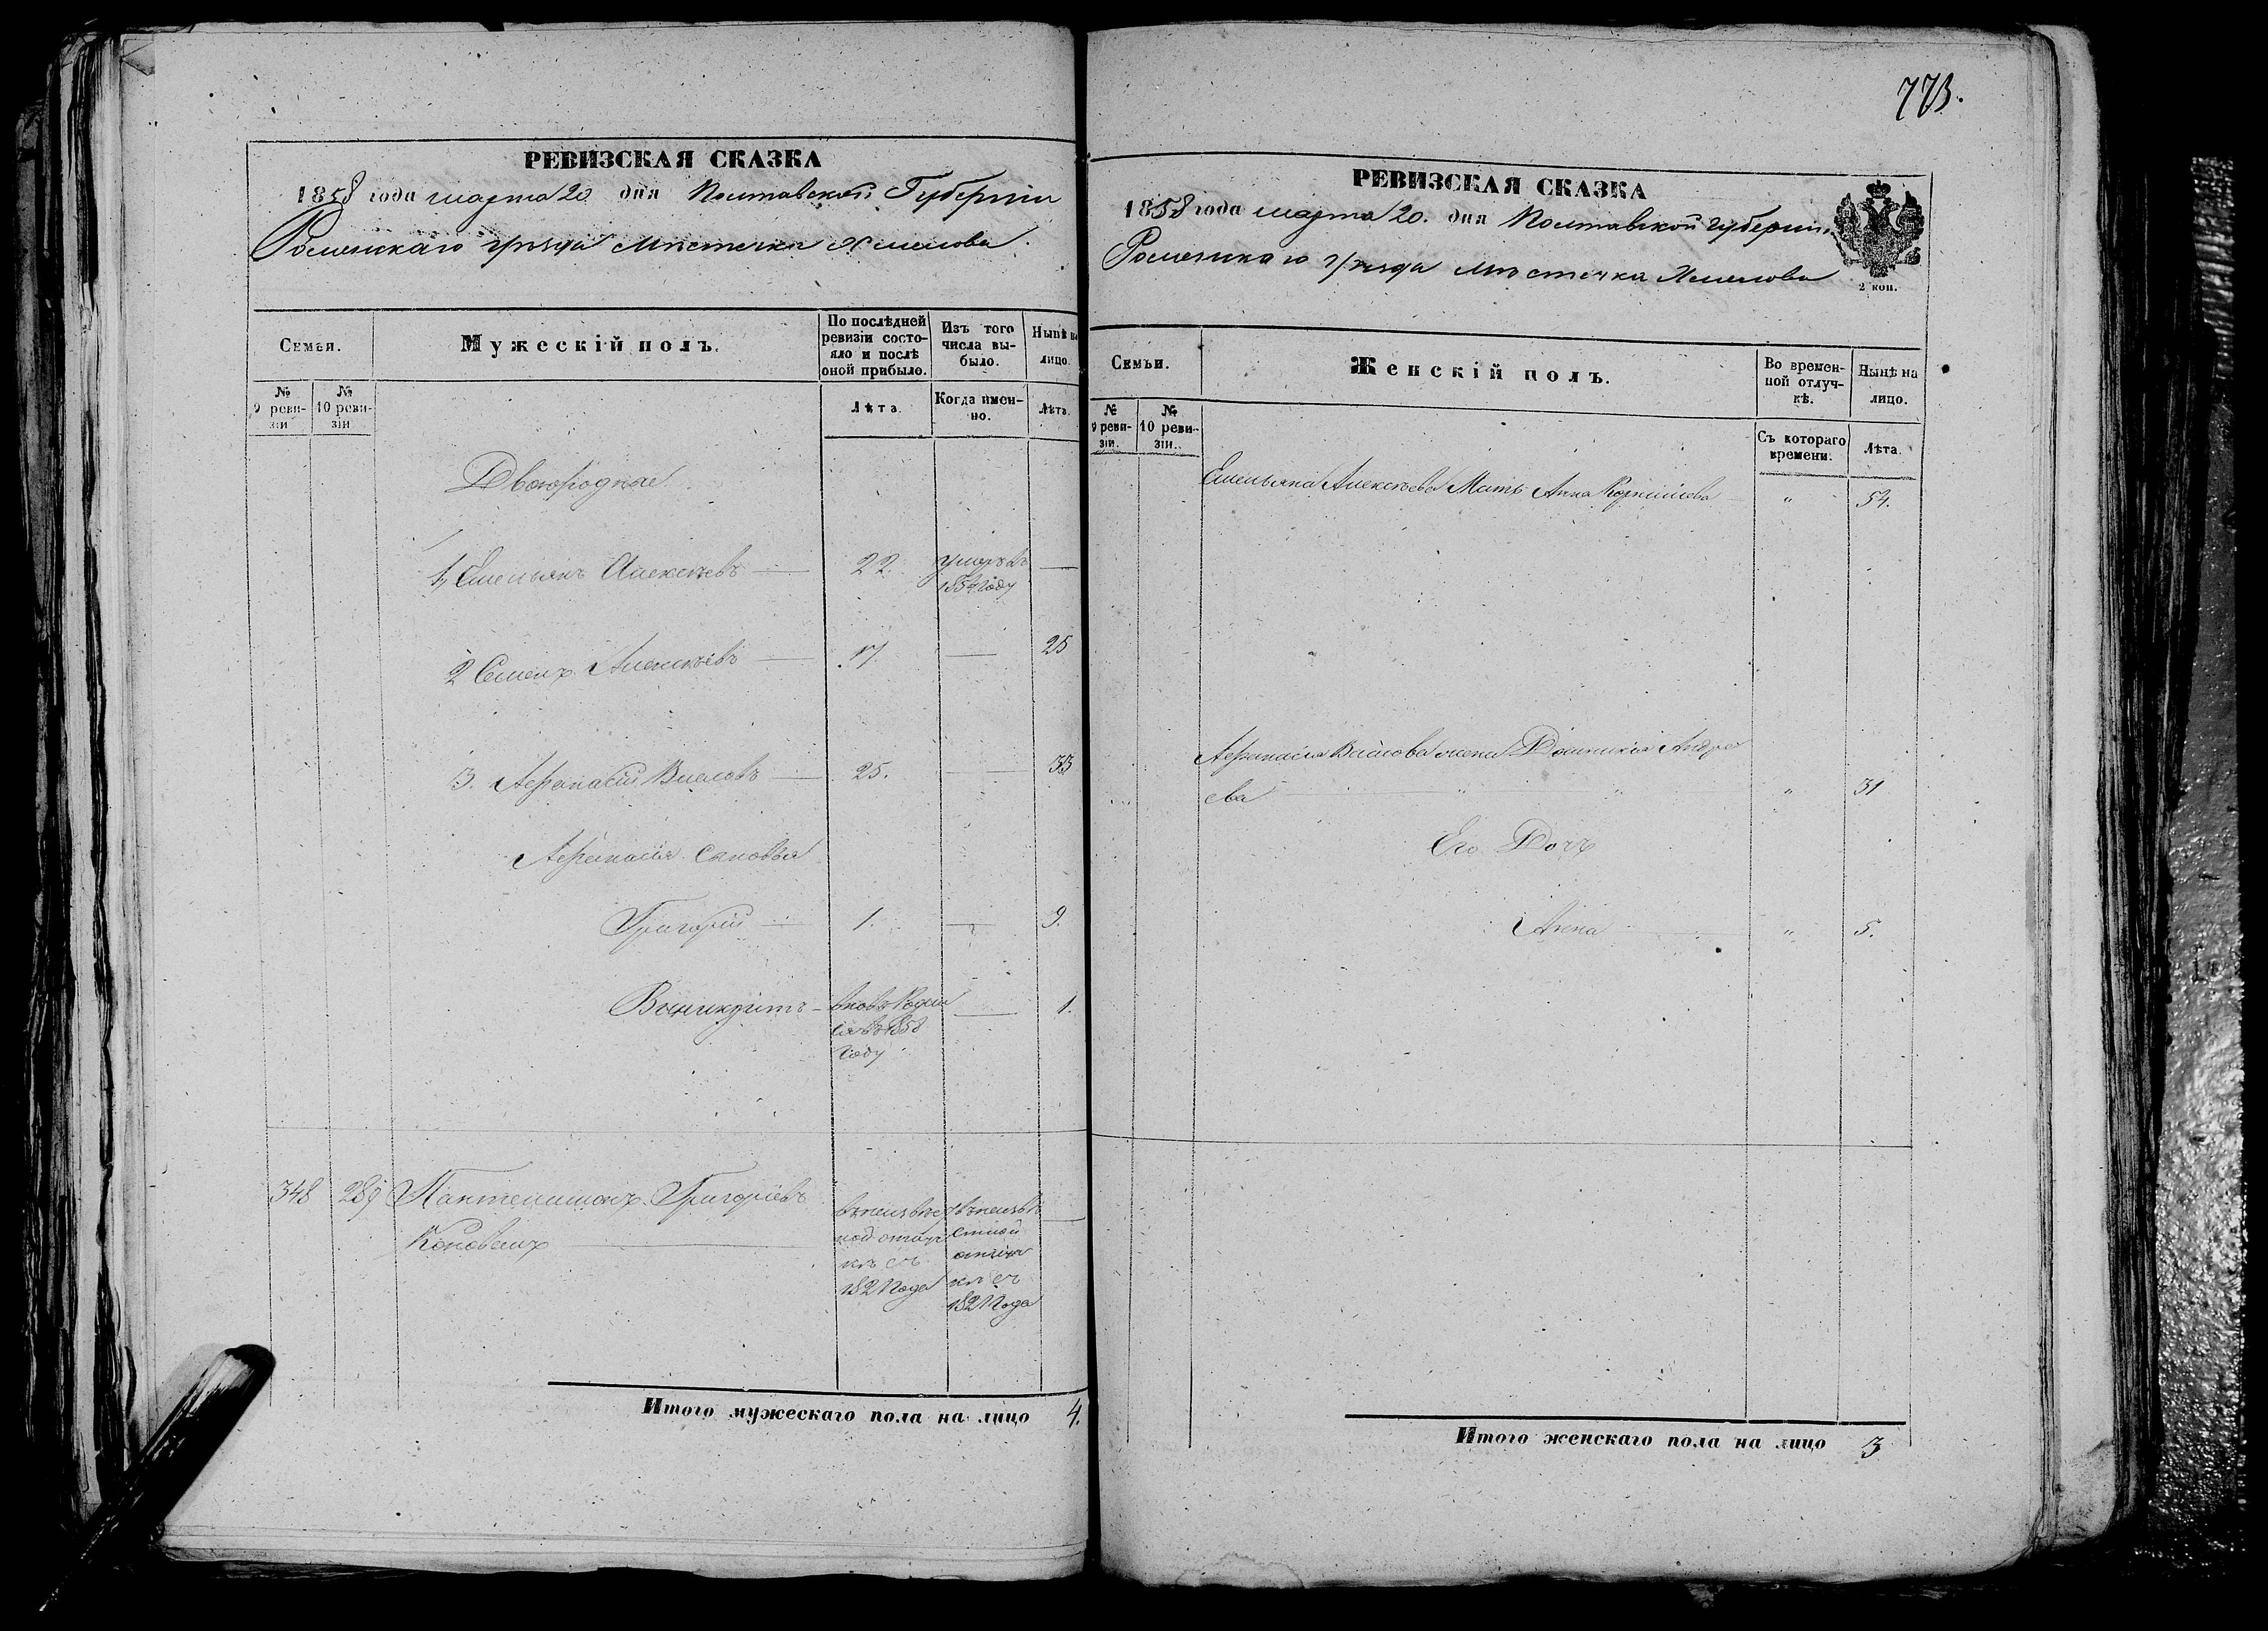 773.
РЕВИЗСКАЯ СКАЗКА
1858 года марта 20 дня Полтавской Губерніи
Роменскаго уѣзда мѣстечка Хмелова.
Семья.
Мужескій полъ.
По послѣдней ревизіи состояло и послѣ оной прибыло.
Изъ того числа выбыло.
Нынѣ на лицо.
№ 9 ревизіи
№ 10 ревизіи
Лѣта.
Когда именно.
Лѣта.
Двоюродные
1, Емельянъ Алексѣевъ — 22. умеръ въ —
185 году
2 Семенъ Алексѣевъ — 17. — 25
3. Афанасій Власовъ — 25. — 33
Афанасія сыновья
Григорій — 1. — 9.
Веникдитъ — вновь роди — 1.
ся въ 1858
году
348 289 Пантелимонъ Григорьевъ
Коновалъ —
въ неизвѣс
ной отлуч
кѣ съ
1821 года
въ неизвѣ
стной
отлуч
кѣ съ
1821 года
Итого мужескаго пола на лицо 4.
РЕВИЗСКАЯ СКАЗКА
1858 года марта 20. дня Полтавской губерніи,
Роменскаго уѣзда мѣстечка Хмелова
2 коп.
Семьи.
Женскій полъ.
Во временной отлучкѣ.
Нынѣ на лицо.
№ 9 ревизіи.
№ 10 ревизіи.
Съ котораго времени.
Лѣта.
Емельяна Алексѣева Мать Анна Корнилева " 54.
Афанасія Власова жена Домникія Андре
ева " " " 31
Его Дочь
Анна " 5.
Итого женскаго пола на лицо 3